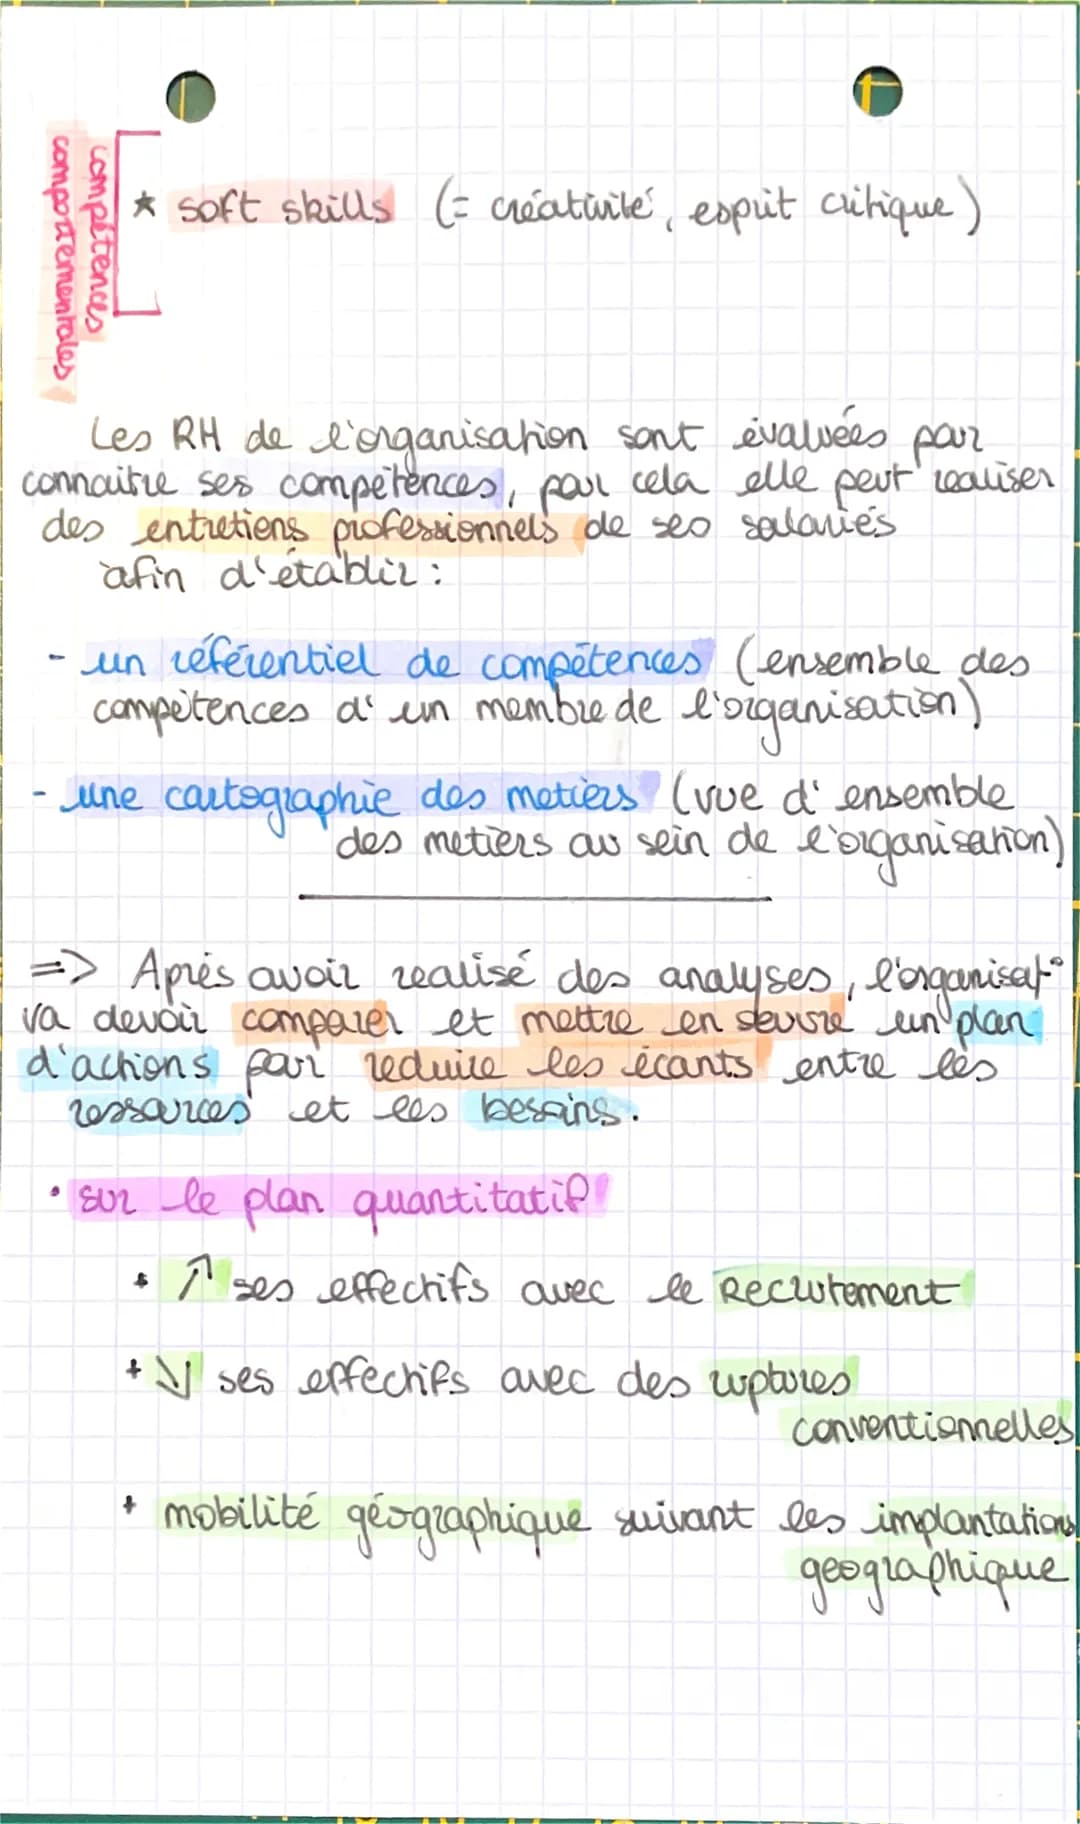 compétences
comportementales
★ soft skills (= créativité, esprit critique)
Les RH de l'organisation sont évaluées pour
connaitre ses compétences, pour cela elle peut realiser
des entretiens professionnels de ses salariés
afin d'établir :
- un référentiel de compétences (ensemble des
compétences d'un membre de l'organisation)
- une cartographie des metiers (vue d'ensemble
des metiers au sein de l'organisation)
=> Après avoir realisé des analyses, l'organisat°
va devoir comparer et mettre en oeuvre un plan
d'actions pour reduire les écarts entre les
ressources et les besoins.
• sur le plan quantitatif
+ ↗ ses effectifs avec le Recrutement
+ ↘ ses effectifs avec des ruptures
conventionnelles
+ mobilité géographique suivant les implantations
geographique